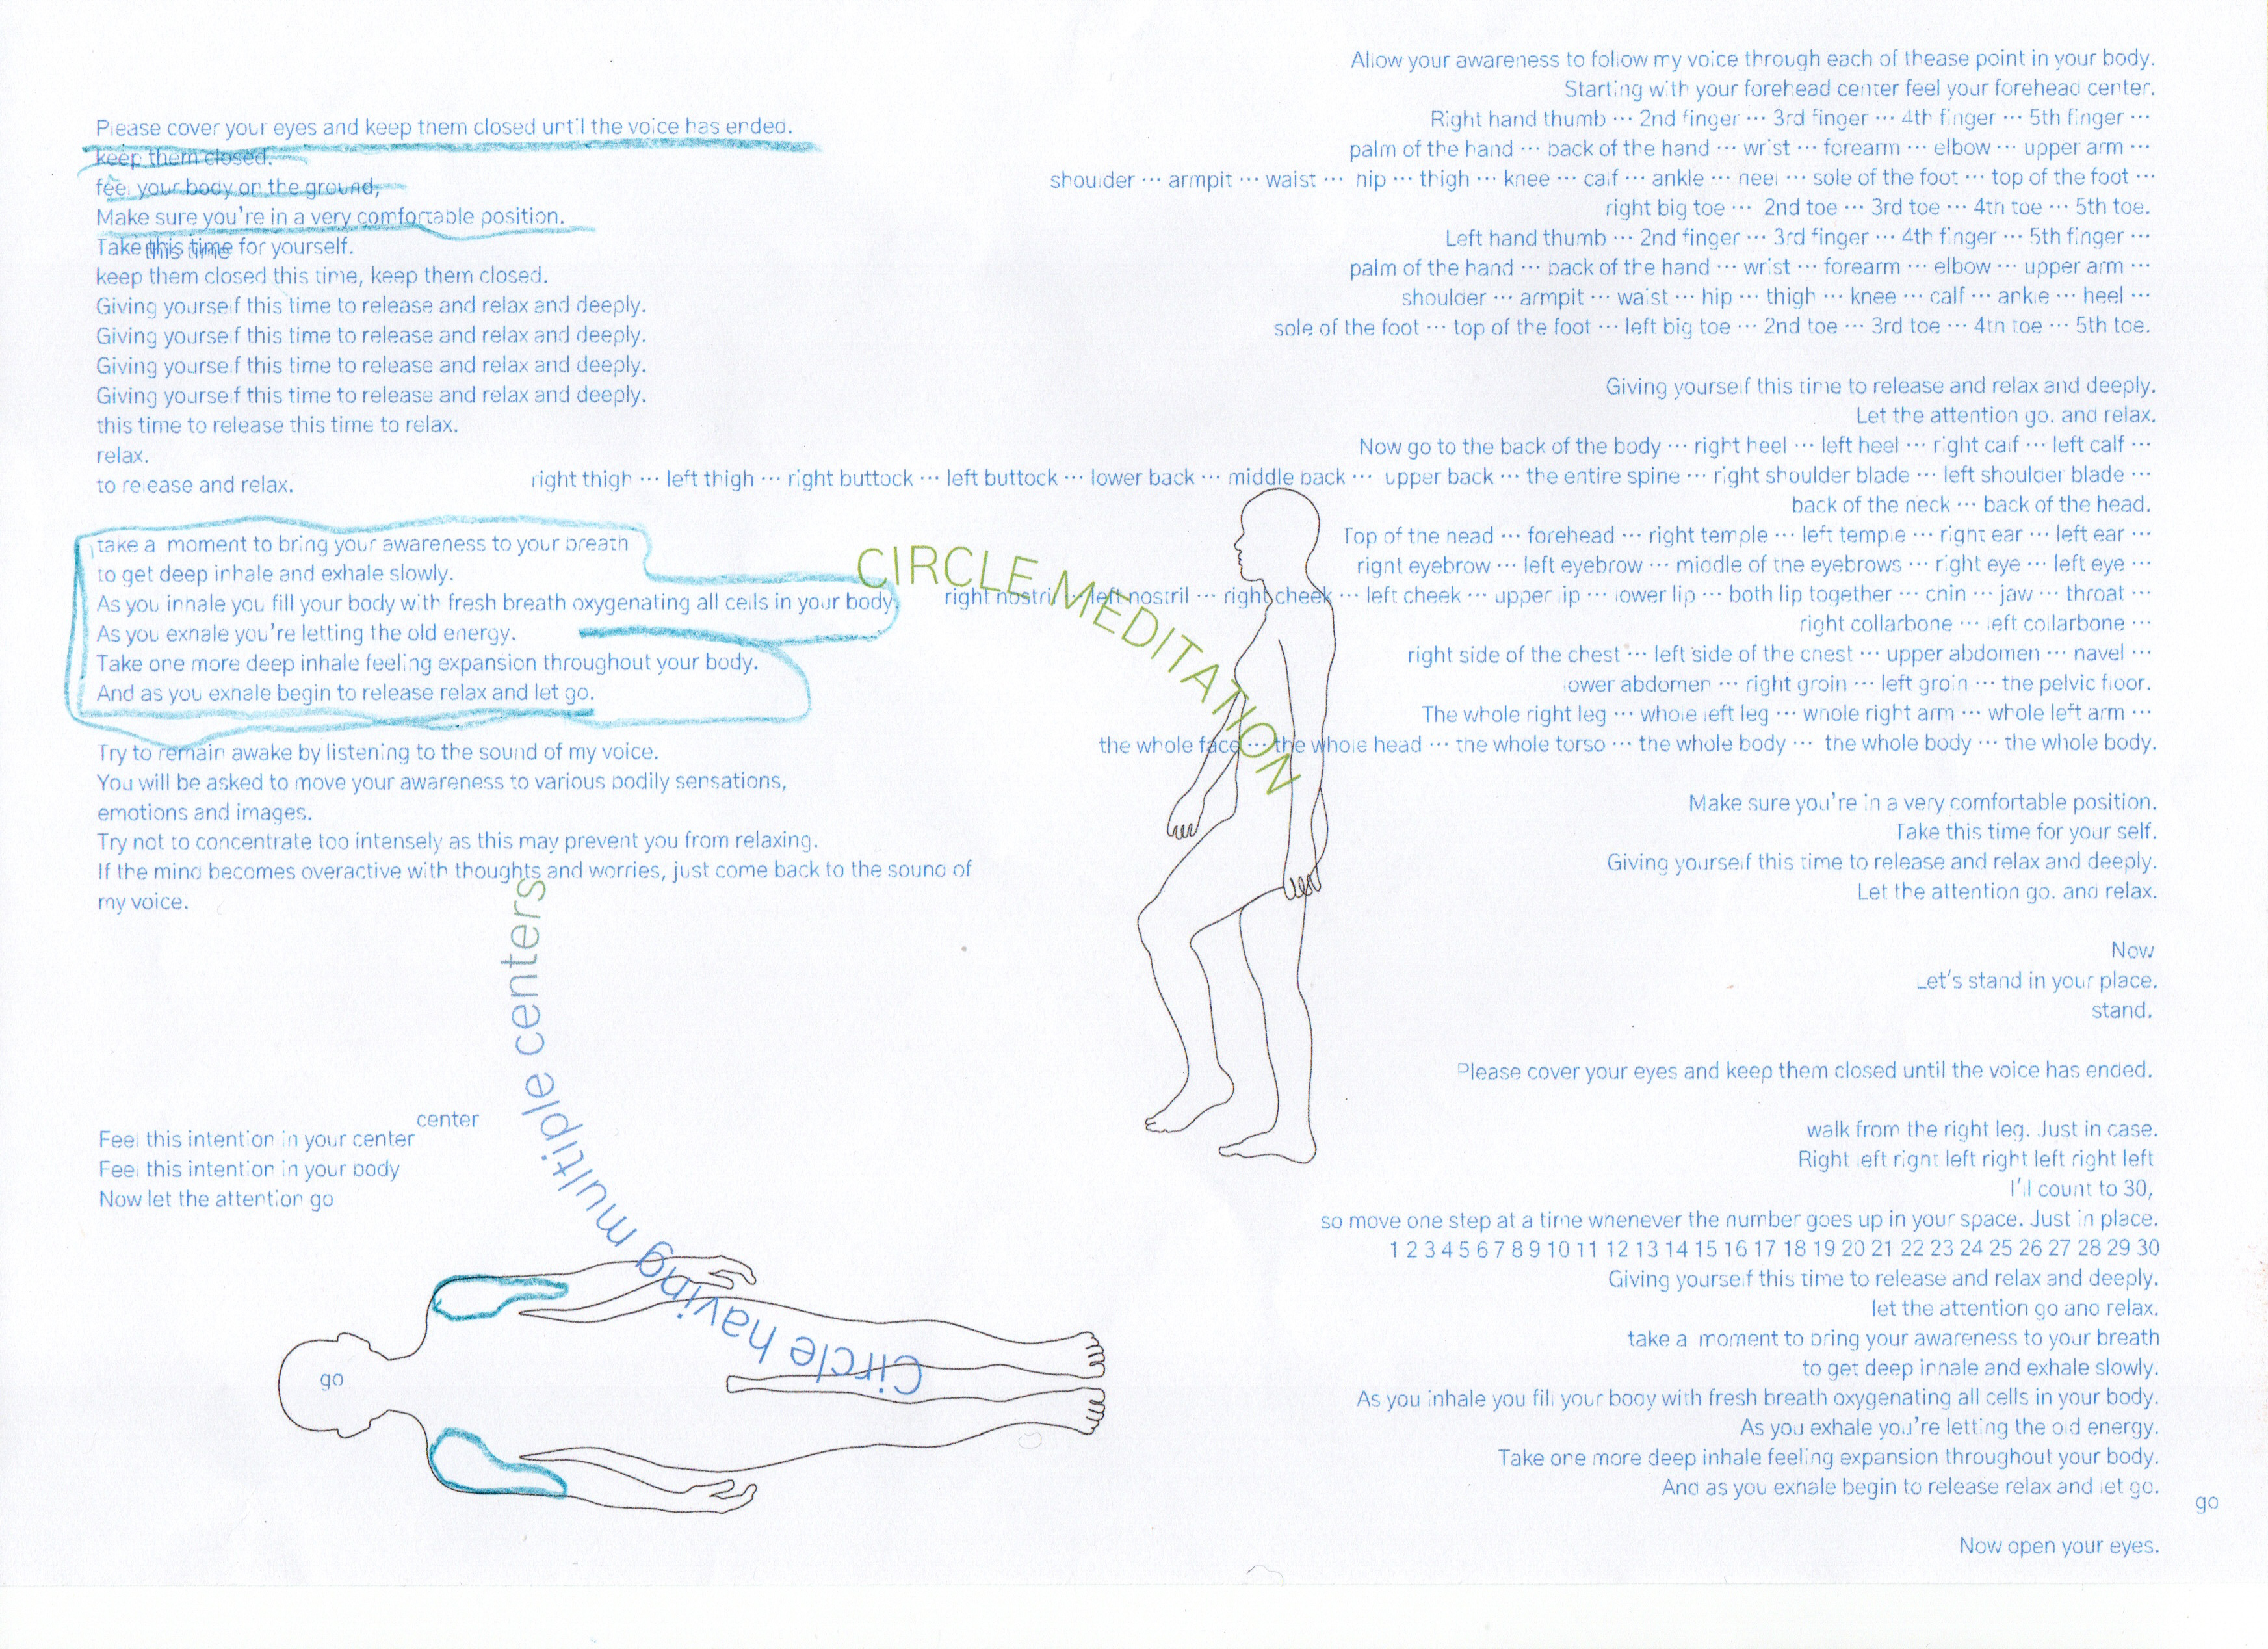 Please cover your eyes and keep them closed until the voice has ended.
keep them closed.
feel your body on the ground,
Make sure you're in a very comfortable position.
Take this time for yourself.
this time
keep them closed this time, keep them closed.
Giving yourself this time to release and relax and deeply.
Giving yourself this time to release and relax and deeply.
Giving yourself this time to release and relax and deeply.
Giving yourself this time to release and relax and deeply.
this time to release this time to relax.
relax.
to release and relax.
take a moment to bring your awareness to your breath
to get deep inhale and exhale slowly.
As you inhale you fill your body with fresh breath oxygenating all cells in your body.
As you exhale you're letting the old energy.
Take one more deep inhale feeling expansion throughout your body.
And as you exhale begin to release relax and let go.
Try to remain awake by listening to the sound of my voice.
You will be asked to move your awareness to various bodily sensations,
emotions and images.
Try not to concentrate too intensely as this may prevent you from relaxing.
If the mind becomes overactive with thoughts and worries, just come back to the sound of
my voice.
center
Feel this intention in your center
Feel this intention in your body
Now let the attention go
go
CIRCLE MEDITATION
Circle having multiple centers
Allow your awareness to follow my voice through each of thease point in your body.
Starting with your forehead center feel your forehead center.
Right hand thumb ··· 2nd finger ··· 3rd finger ··· 4th finger ··· 5th finger ···
palm of the hand ··· back of the hand ··· wrist ··· forearm ··· elbow ··· upper arm ···
shoulder ··· armpit ··· waist ··· hip ··· thigh ··· knee ··· calf ··· ankle ··· heel ··· sole of the foot ··· top of the foot ···
right big toe ··· 2nd toe ··· 3rd toe ··· 4th toe ··· 5th toe.
Left hand thumb ··· 2nd finger ··· 3rd finger ··· 4th finger ··· 5th finger ···
palm of the hand ··· back of the hand ··· wrist ··· forearm ··· elbow ··· upper arm ···
shoulder ··· armpit ··· waist ··· hip ··· thigh ··· knee ··· calf ··· ankle ··· heel ···
sole of the foot ··· top of the foot ··· left big toe ··· 2nd toe ··· 3rd toe ··· 4th toe ··· 5th toe.
Giving yourself this time to release and relax and deeply.
Let the attention go. and relax.
Now go to the back of the body ··· right heel ··· left heel ··· right calf ··· left calf ···
right thigh ··· left thigh ··· right buttock ··· left buttock ··· lower back ··· middle back ··· upper back ··· the entire spine ··· right shoulder blade ··· left shoulder blade ···
back of the neck ··· back of the head.
Top of the head ··· forehead ··· right temple ··· left temple ··· right ear ··· left ear ···
right eyebrow ··· left eyebrow ··· middle of the eyebrows ··· right eye ··· left eye ···
right nostril ··· left nostril ··· right cheek ··· left cheek ··· upper lip ··· lower lip ··· both lip together ··· chin ··· jaw ··· throat ···
right collarbone ··· left collarbone ···
right side of the chest ··· left side of the chest ··· upper abdomen ··· navel ···
lower abdomen ··· right groin ··· left groin ··· the pelvic floor.
The whole right leg ··· whole left leg ··· whole right arm ··· whole left arm ···
the whole face ··· the whole head ··· the whole torso ··· the whole body ··· the whole body ··· the whole body.
Make sure you're in a very comfortable position.
Take this time for your self.
Giving yourself this time to release and relax and deeply.
Let the attention go. and relax.
Now
Let's stand in your place.
stand.
Please cover your eyes and keep them closed until the voice has ended.
walk from the right leg. Just in case.
Right left right left right left right left
I'll count to 30,
so move one step at a time whenever the number goes up in your space. Just in place.
1 2 3 4 5 6 7 8 9 10 11 12 13 14 15 16 17 18 19 20 21 22 23 24 25 26 27 28 29 30
Giving yourself this time to release and relax and deeply.
let the attention go and relax.
take a moment to bring your awareness to your breath
to get deep inhale and exhale slowly.
As you inhale you fill your body with fresh breath oxygenating all cells in your body.
As you exhale you're letting the old energy.
Take one more deep inhale feeling expansion throughout your body.
And as you exhale begin to release relax and let go.
go
Now open your eyes.